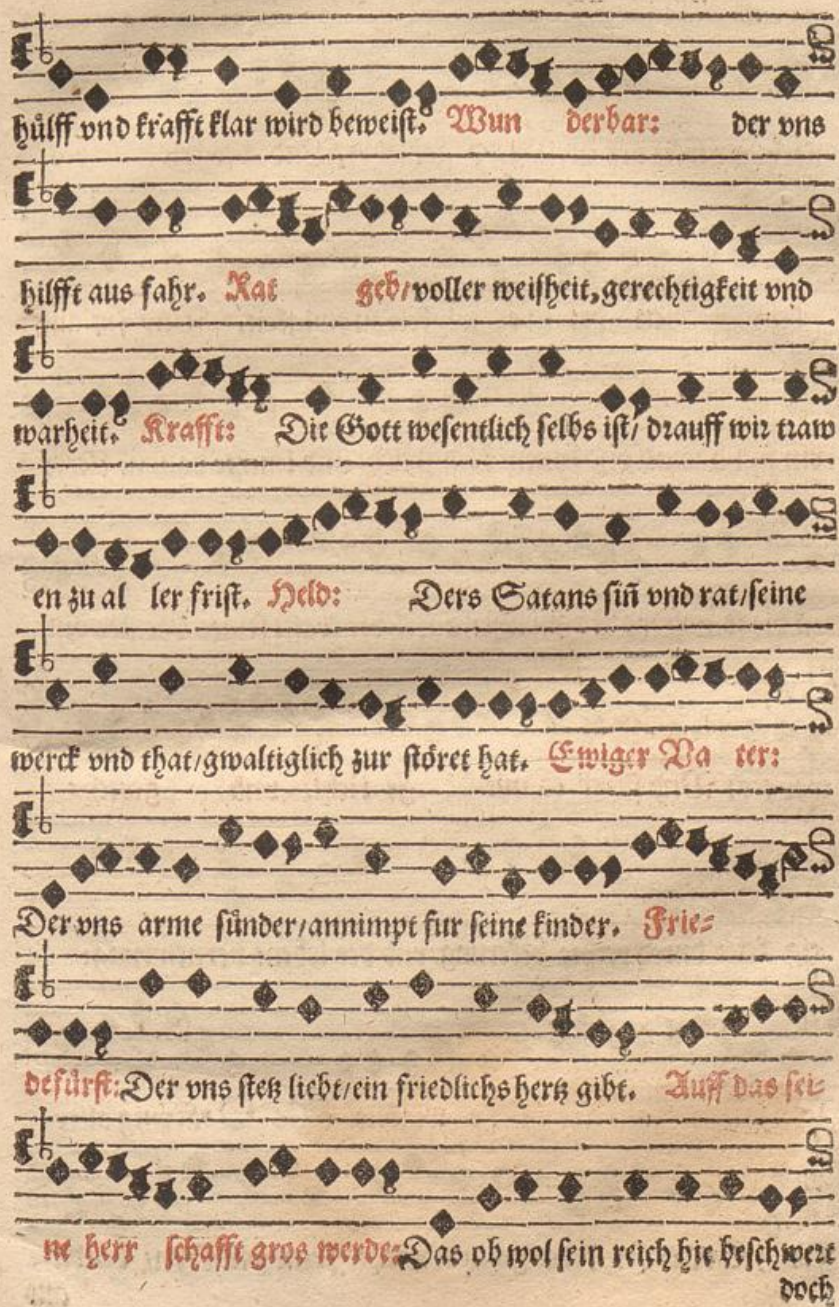 hülff vnd krafft klar wird beweist. Wun derbar: der vns
hilfft aus fahr. Rat geb/voller weisheit, gerechtigkeit vnd
warheit. Krafft: Die Gott wesentlich selbs ist/ drauff wir traw
en zu al ler frist. Held: Ders Satans siñ vnd rat/seine
werck vnd that/gwaltiglich zur störet hat. Ewiger Va ter:
Der vns arme sünder/annimpt fur seine kinder. Frie-
defürst: Der vns stetz liebt/ein friedlichs hertz gibt. Auff das sei-
ne herr schafft gros werde: Das ob wol sein reich hie beschwert
doch